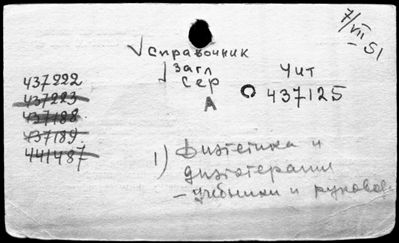 7/VII
– 51
√ Справочник
√ Загл
Сер
А
Чит
437125
437222
437223
437188
437189
441487
1) Диэтетика и
диэтотерапия
– учебники и руковод